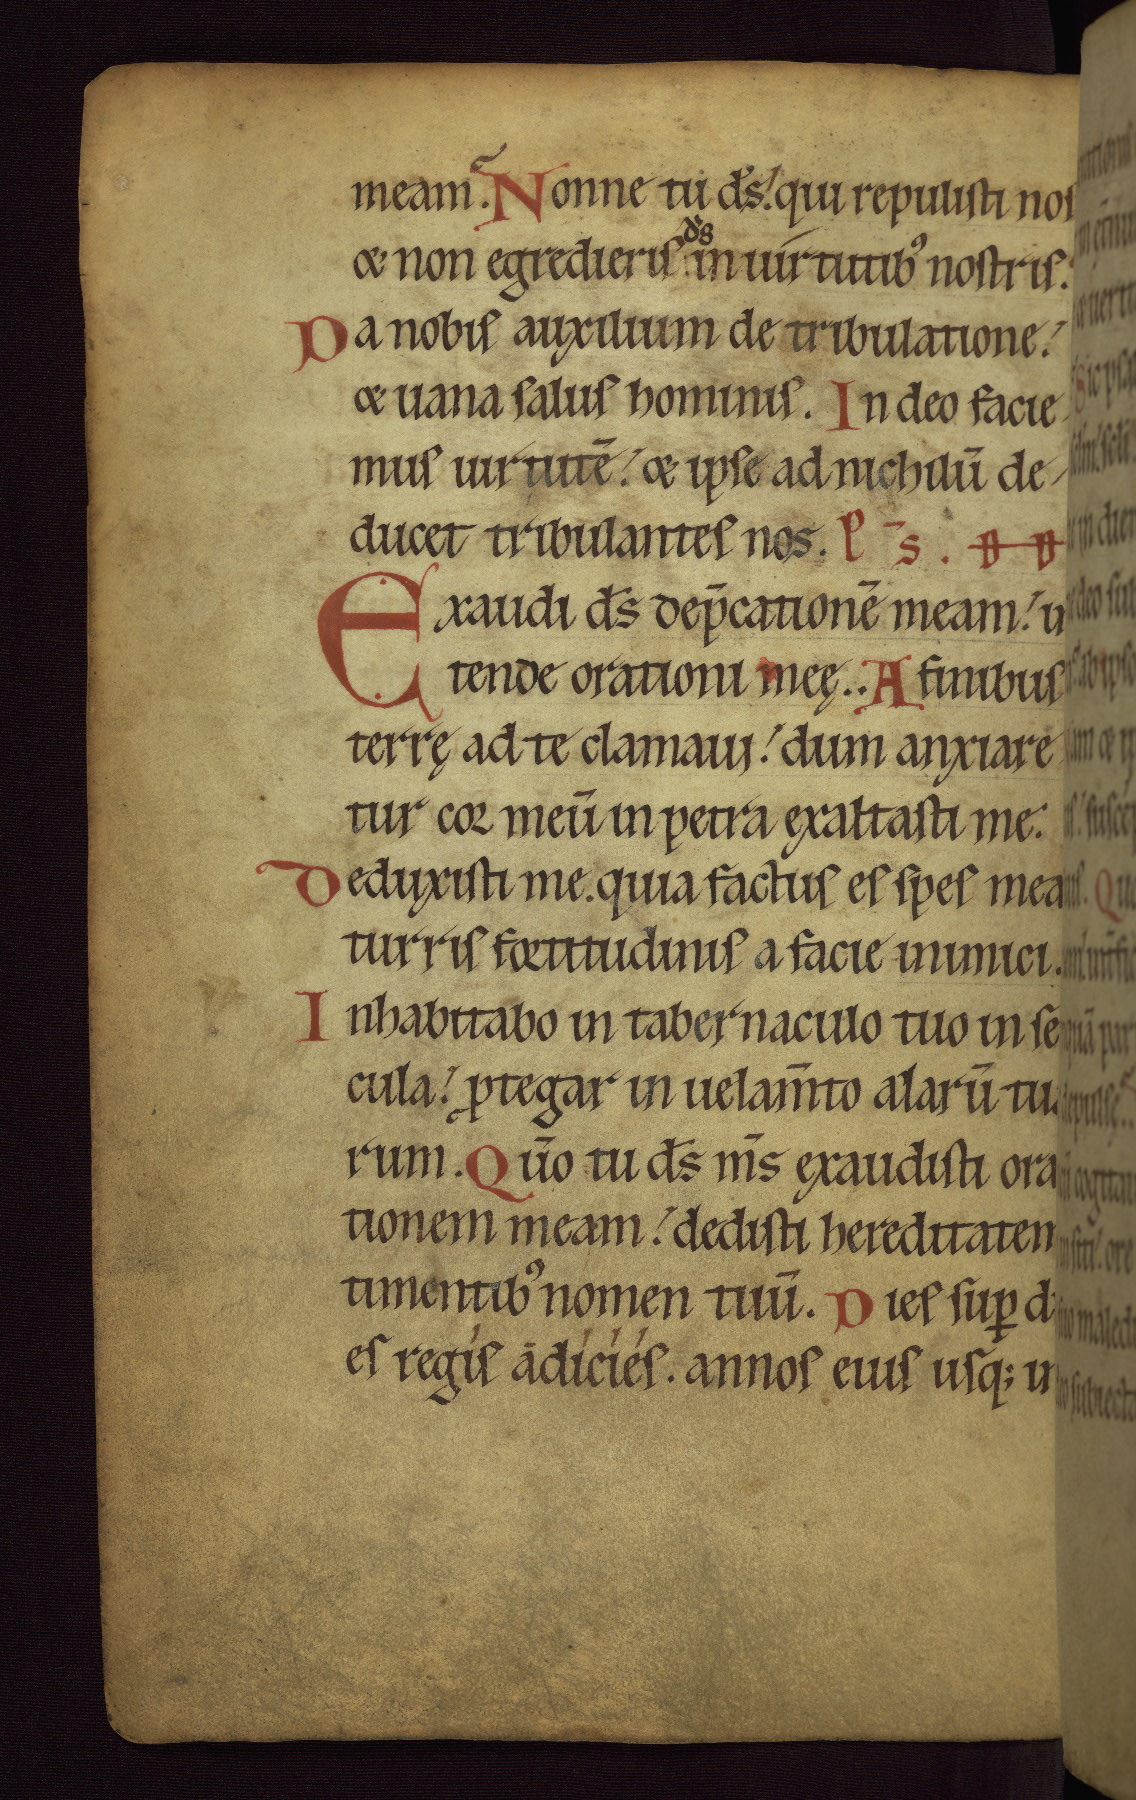 meam. Nonne tu ds̄. qui repulisti nos
& non egredieris ds in uirtutib⁹ nostris.
Da nobis auxilium de tribulatione.
& uana salus hominis. In deo facie
mus uirtutē. & ipse ad nichilū de
ducet tribulantes nos. P̄ s.
Exaudi ds̄ dep̄cationē meam. 
tende orationi meę.. A finibus
terrę ad te clamaui. dum anxiare
tur cor meū in petra exaltasti me.
Deduxisti me. quia factus es spes mea
turris fortitudinis a facie inimici.
Inhabitabo in tabernaculo tuo in se
cula. ꝓtegar in uelam̄to alarū tua
rum. Qūo tu ds̄ ms̄ exaudisti ora
tionem meam. dedisti hereditatem
timentib⁹ nomen tuū. Dies suꝑ di
es regis ādicies. annos eius usq;